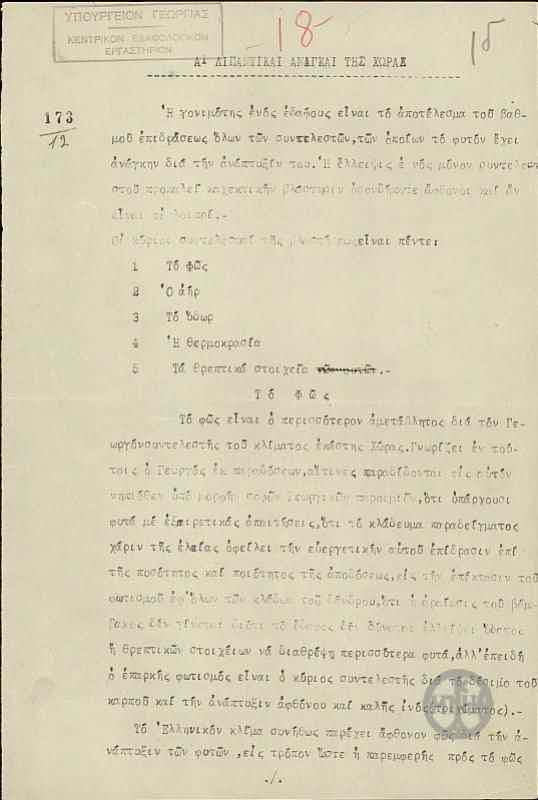 ΥΠΟΥΡΓΕΙΟΝ ΓΕΩΡΓΙΑΣ
ΚΕΝΤΡΙΚΟΝ ΕΔΑΦΟΛΟΓΙΚΟΝ
ΕΡΓΑΣΤΗΡΙΟΝ
- 18
15
ΑΙ ΛΙΠΑΝΤΙΚΑΙ ΑΝΑΓΚΑΙ ΤΗΣ ΧΩΡΑΣ
173
12
Ἡ γονιμότης ἑνός ἐδάφους εἶναι τό ἀποτέλεσμα τοῦ βαθ-
μοῦ ἐπιδράσεως ὅλων τῶν συντελεστῶν,τῶν ὁποίων τό φυτόν ἔχει
ἀνάγκην διά τήν ἀνάπτυξίν του.Ἡ ἔλλειψις ἑ νός μόνου συντελε
στοῦ προκαλεῖ καχεκτικήν βλάστησιν ὁσονδήποτε ἄφθονοι καί ἄν
εἶναι οἱ λοιποί.-
Οἱ κύριοι συντελεσταί τῆς βλαστήσεωςεἶναι πέντε:
1 Τό φῶς
2 Ὁ ἀήρ
3 Τό ὕδωρ
4 Ἡ θερμοκρασία
5 Τά θρεπτικά στοιχεῖα .-
Τ ό Φ ῶ ς
Τό φῶς εἶναι ὁ περισσότερον ἀμετάβλητος διά τόν Γε-
ωργόνσυντελεστής τοῦ κλίματος ἑκάστης Χώρας.Γνωρίζει ἐν τού-
τοις ὁ Γεωργός ἐκ παραδόσεων,αἵτινες παραδίδονται εἰς αὐτόν
ὑπό μορφήν σοφῶν Γεωργικῶν παροιμιῶν,ὅτι ὑπάρχουσι
φυτά μέ ἐξαιρετικάς ἀπαιτήσεις,ὅτι τό κλάδευμα παραδείγματος
χάριν τῆς ἐλαίας ὀφείλει τήν εὐεργετικήν αὐτοῦ ἐπίδρασιν ἐπί
τῆς ποσότητος καί ποιότητος τῆς ἀποδόσεως,εἰς τήν ἐπέκτασιν τοῦ
φωτισμοῦ ἐφ'ὅλων τῶν κλάδων τοῦ δένδρου,ὅτι ἡ ἀραίωσις τοῦ βάμ-
βακος δέν γίνεται διότι τό ἔδαφος δέν δύναται ἐλλείψει ὕδατος
ἤ θρεπτικῶν στοιχείων νά διαθρέψῃ περισσότερα φυτά,ἀλλ'ἐπειδή
ὁ ἐπαρκής φωτισμός εἶναι ὁ κύριος συντελεστής διά τό δέσιμο τοῦ
καρποῦ καί τήν ἀνάπτυξιν ἀφθόνου καί καλῆς ἰνός(στρώματος).-
Τό Ἑλληνικόν κλῖμα συνήθως παρέχει ἄφθονον φῶς διά τήν ἀ-
νάπτυξιν τῶν φυτῶν ,εἰς τρόπον ὥστε ἡ παρεμφερής πρός τό φῶς
./.